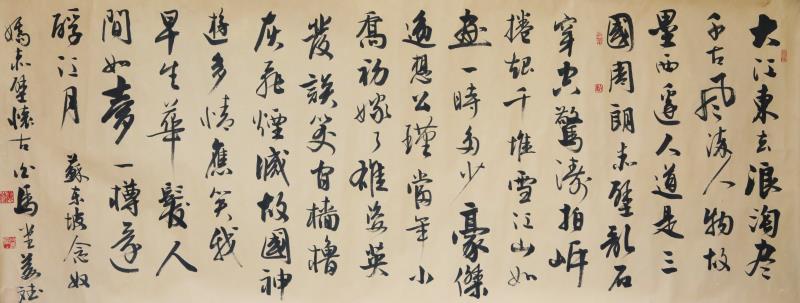 大江東去浪淘盡
千古風流人物故
壘西邊人道是三
國周朗赤壁亂石
穿空驚濤拍岸
捲起千堆雪江山如
畫一時多少豪傑
遙想公瑾當年小
喬初嫁了雄姿英
發談笑間檣櫓
灰飛煙滅故國神
遊多情應笑我
早生華髮人
間如夢一樽還
酹江月 蘇東坡念奴
嬌赤壁懷古